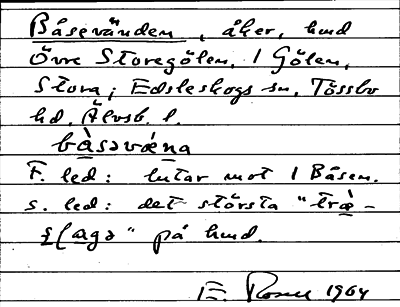 Båsevänden, åker, hmd
Övre Storegölen, 1 Gölen,
Stora; Edsleskogs sn, Tössbo
hd, Älvsb. l.
bàsəvǽna
F. led: lutar mot 1 Båsen.
S. led: det största "træ̀-
ʂɭagə" på hmd.
E Rosell 1964